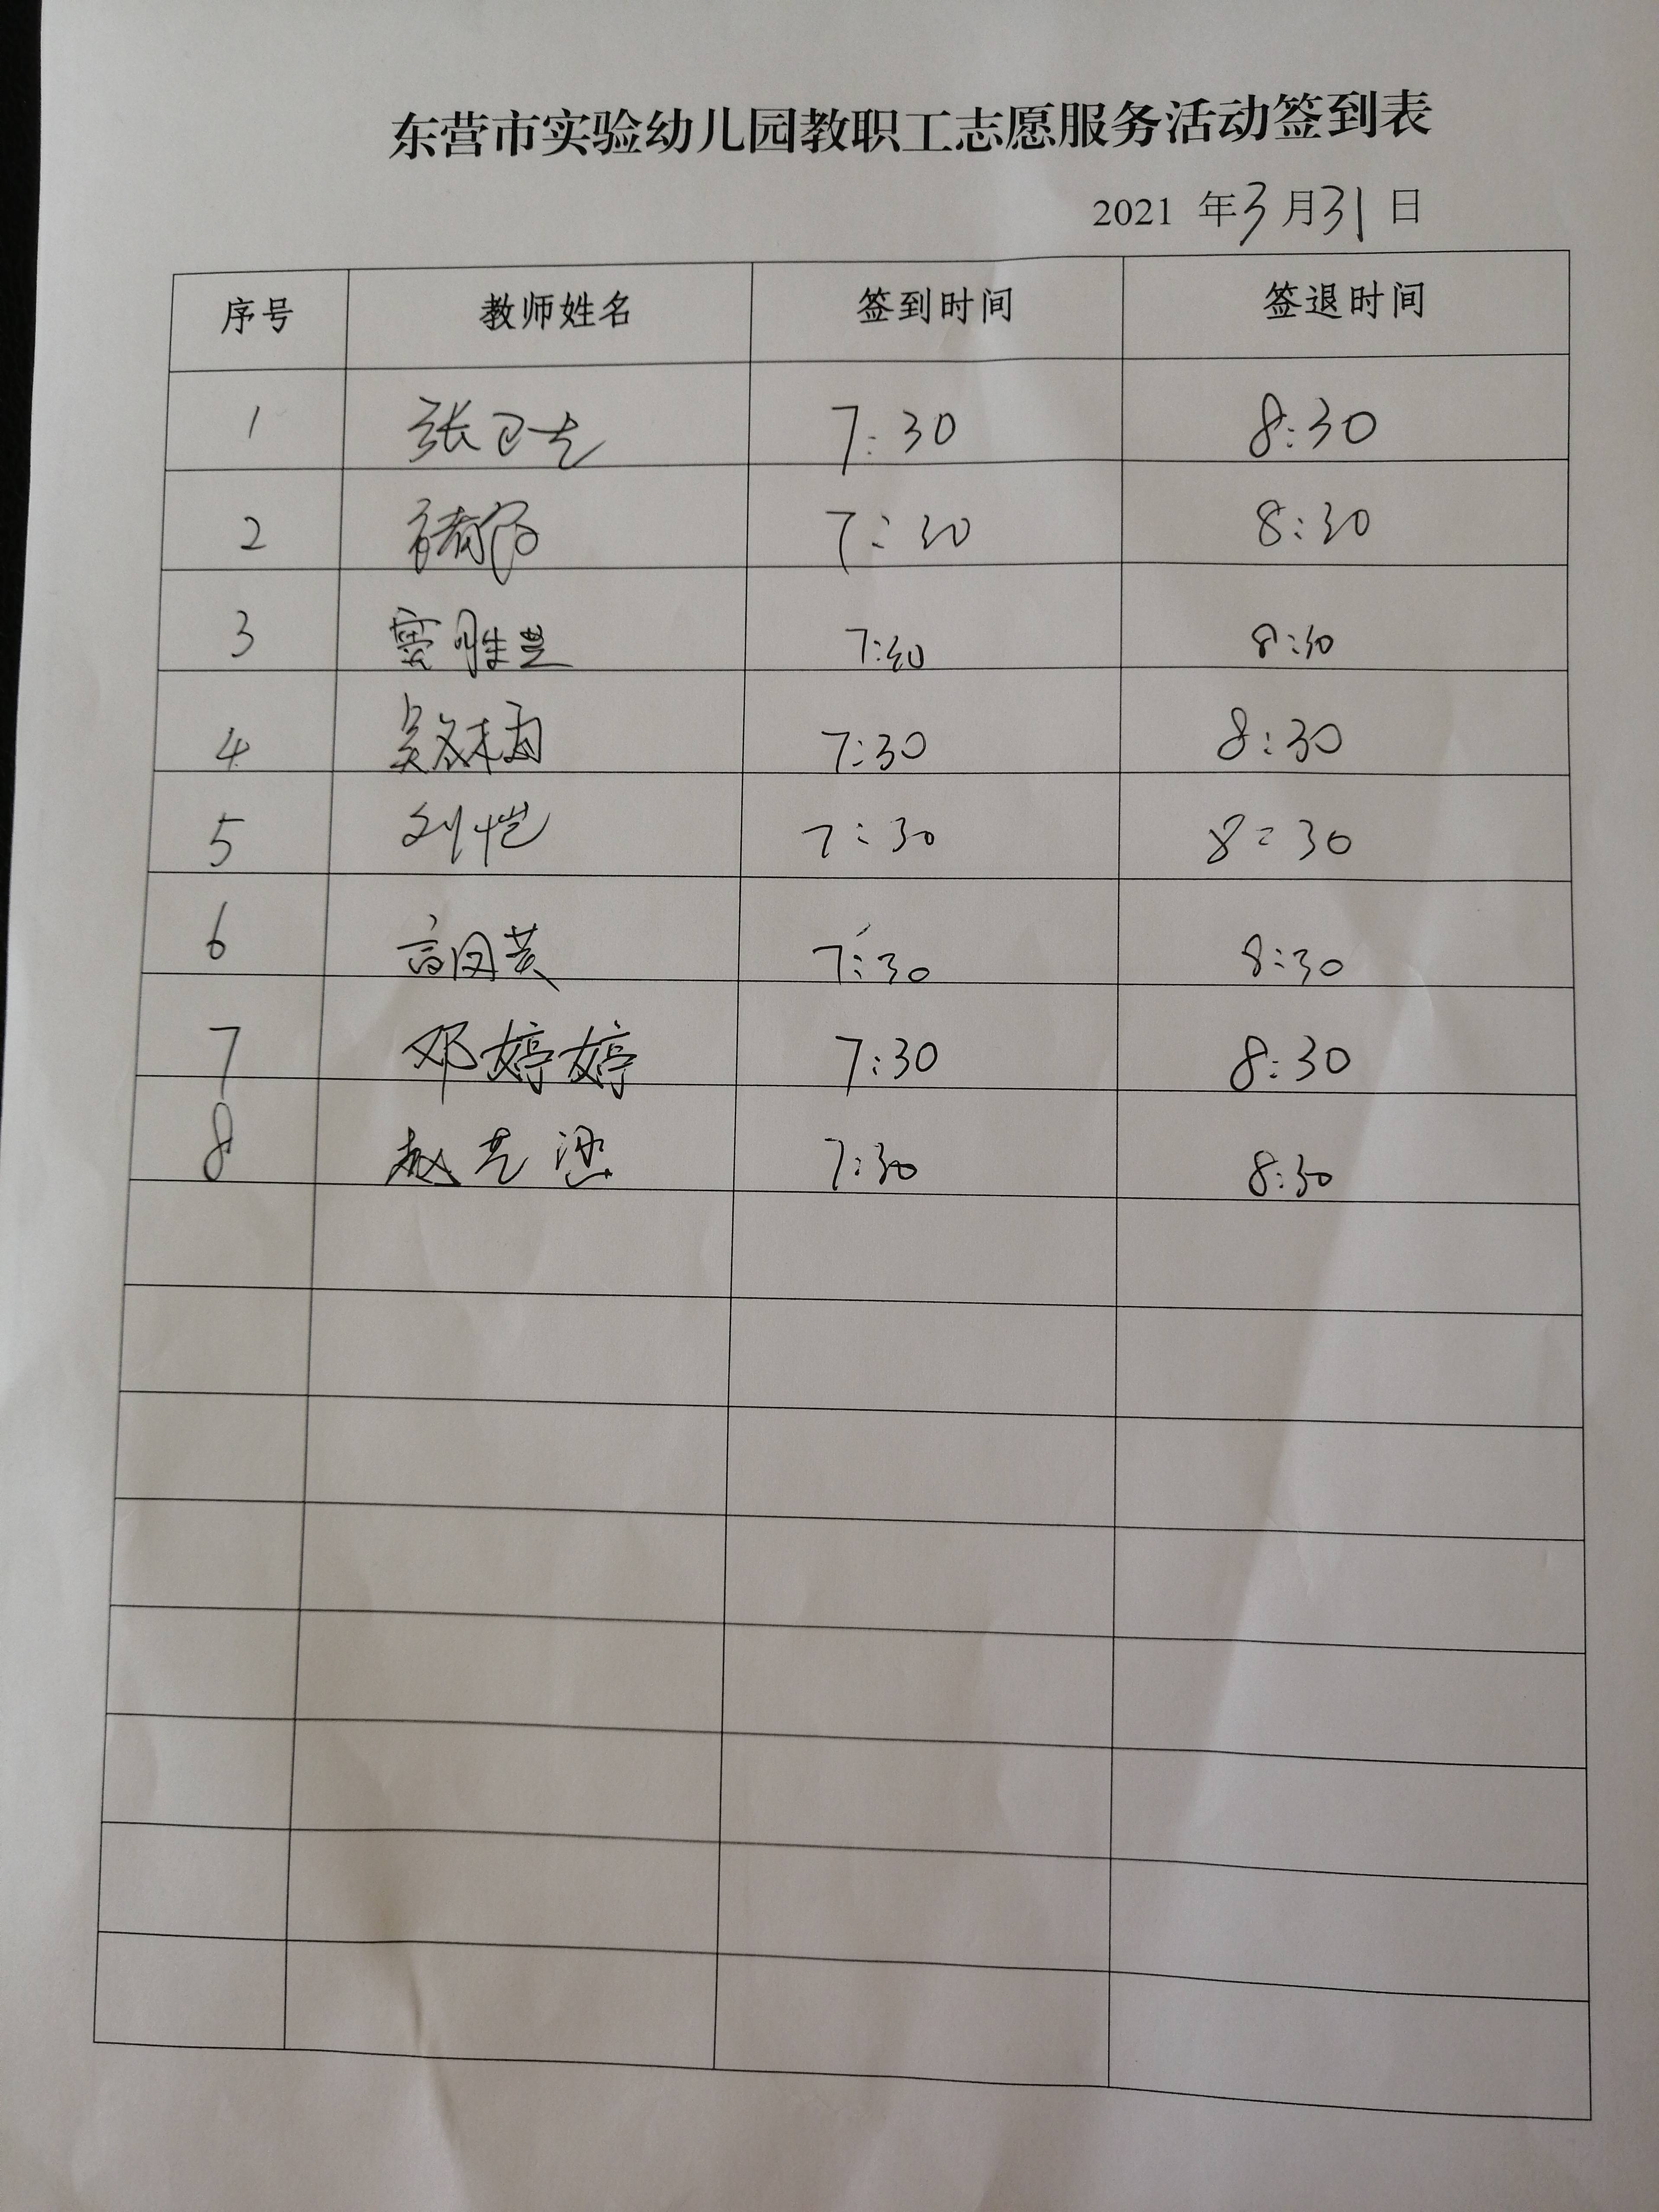 东营市实验幼儿园教职工志愿服务活动签到表
2021 年3月31日
序号 教师姓名 签到时间 签退时间
1 张卫 7:30 8:30
2 褚 7:30 8:30
3 窦胜兰 7:30 8:30
4 吴 雨 7:30 8:30
5 刘恺 7:30 8:30
6 高凤英 7:30 8:30
7 邓婷婷 7:30 8:30
8 赵 7:30 8:30